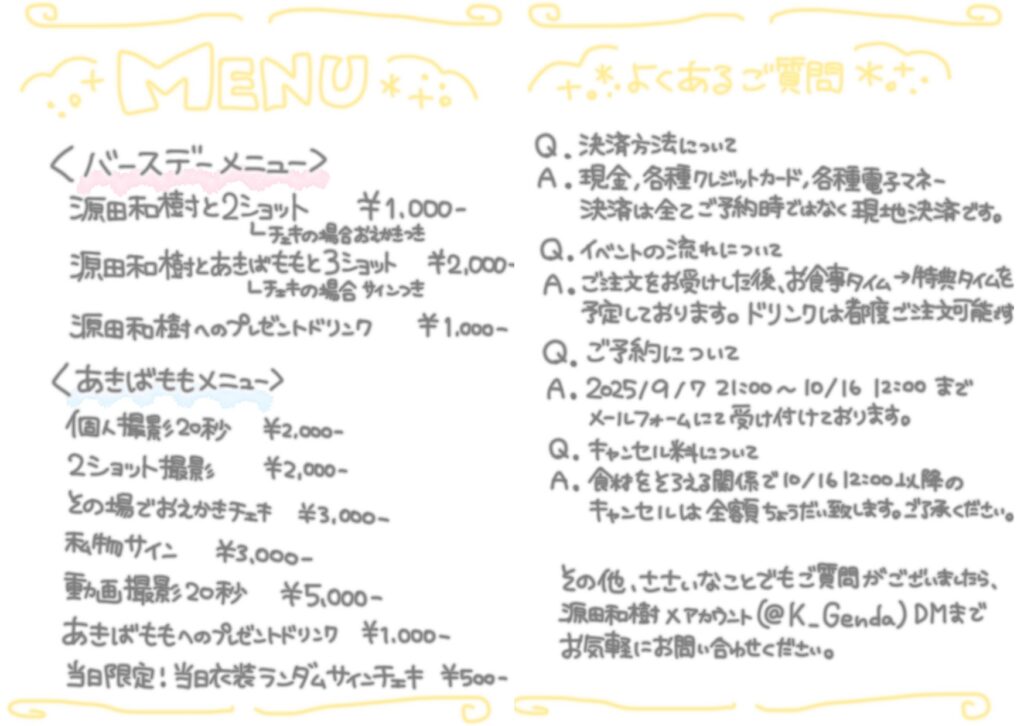 MENU
<バースデーメニュー>
源田和樹と2ショット ¥1,000-
└チェキの場合おえかきつき
源田和樹とあきばももと3ショット ¥2,000-
└チェキの場合 サインつき
源田和樹へのプレゼントドリンク ¥1,000-
<あきばももメニュー>
個人撮影20秒 ¥2,000-
2ショット撮影 ¥2,000-
その場でおえかきチェキ ¥3,000-
私物サイン ¥3,000-
動画撮影20秒 ¥5,000-
あきばももへのプレゼントドリンク ¥1,000-
当日限定!当日衣装ランダムサインチェキ ¥500-
よくあるご質問
Q.決済方法について
A.現金,各種クレジットカード,各種電子マネー
決済は全てご予約時ではなく現地決済です。
Q.イベントの流れについて
A.ご注文をお受けした後、お食事タイム→特典タイムを
予定しております。ドリンクは都度ご注文可能です
Q.ご予約について
A.2025/9/7 21:00〜10/16 12:00 まで
メールフォームにて受け付けております。
Q.キャンセル料について
A.食材をそろえる関係で10/16 12:00以降の
キャンセルは全額ちょうだい致します。ご了承ください。
その他、ささいなことでもご質問がございましたら、
源田和樹Xアカウント(@K_Genda)DMまで
お気軽にお問い合わせください。